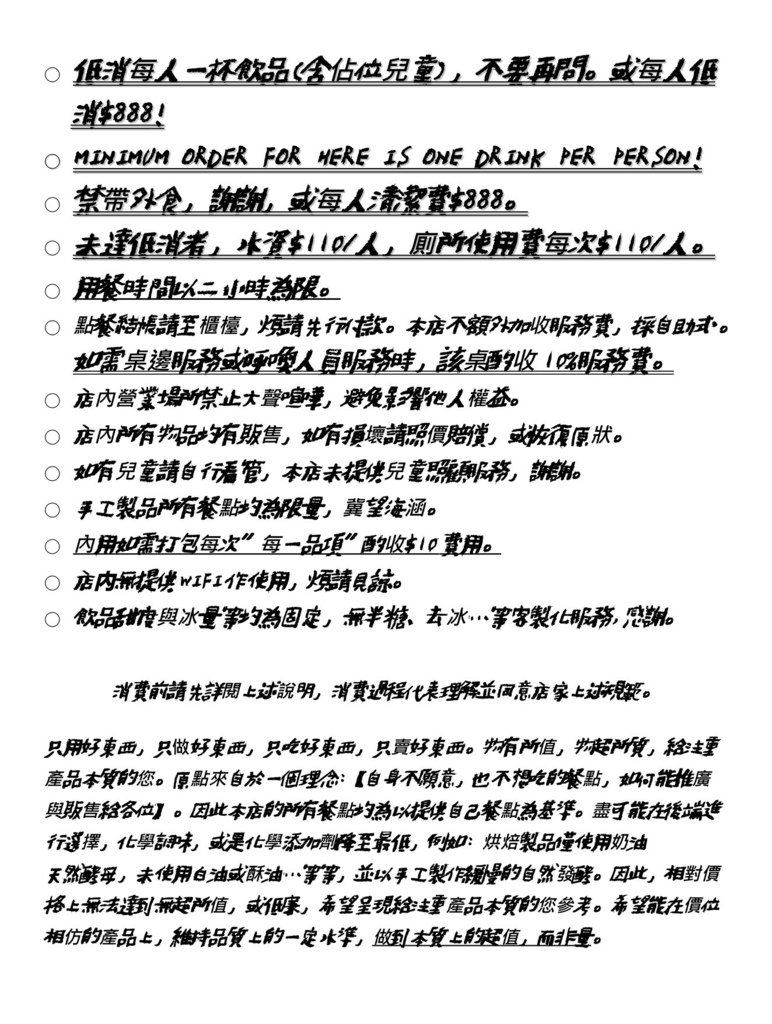 ○ 低消每人一杯飲品(含佔位兒童)，不要再問。或每人低
消$888!
○ MINIMUM ORDER FOR HERE IS ONE DRINK PER PERSON!
○ 禁帶外食，謝謝，或每人清潔費$888。
○ 未達低消者，水資$110/人，廁所使用費每次$110/人。
○ 用餐時間以二小時為限。
○ 點餐結帳請至櫃檯，煩請先行付款。本店不額外加收服務費，採自助式。
如需桌邊服務或呼喚人員服務時，該桌酌收10%服務費。
○ 店內營業場所禁止大聲喧嘩，避免影響他人權益。
○ 店內所有物品均有販售，如有損壞請照價賠償，或恢復原狀。
○ 如有兒童請自行看管，本店未提供兒童照顧服務，謝謝。
○ 手工製品所有餐點均為限量，冀望海涵。
○ 內用如需打包每次"每一品項"酌收$10費用。
○ 店內無提供WIFI作使用，煩請見諒。
○ 飲品甜度與冰量等均為固定，無半糖、去冰…等客製化服務，感謝。
消費前請先詳閱上述說明，消費過程代表理解並同意店家上述規範。
只用好東西，只做好東西，只吃好東西，只賣好東西。物有所值，物超所質，給注重
產品本質的您。原點來自於一個理念:【自身不願意，也不想吃的餐點，如何能推廣
與販售給各位】。因此本店的所有餐點均為以提供自己餐點為基準。盡可能在後端進
行選擇，化學調味，或是化學添加劑降至最低，例如: 烘焙製品僅使用奶油
天然酵母，未使用白油或酥油…等等，並以手工製作緩慢的自然發酵。因此，相對價
格上無法達到無超所值，或低廉，希望呈現給注重產品本質的您參考。希望能在價位
相仿的產品上，維持品質上的一定水準，做到本質上的超值，而非量。